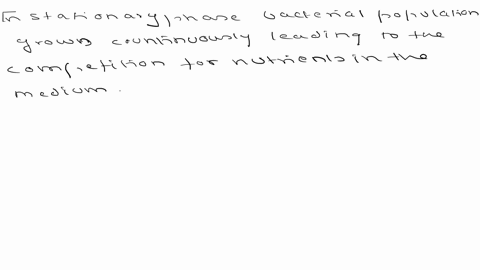 In stationary phase bacterial population
grows countinuously leading to the
competition for nutrients in the
medium.